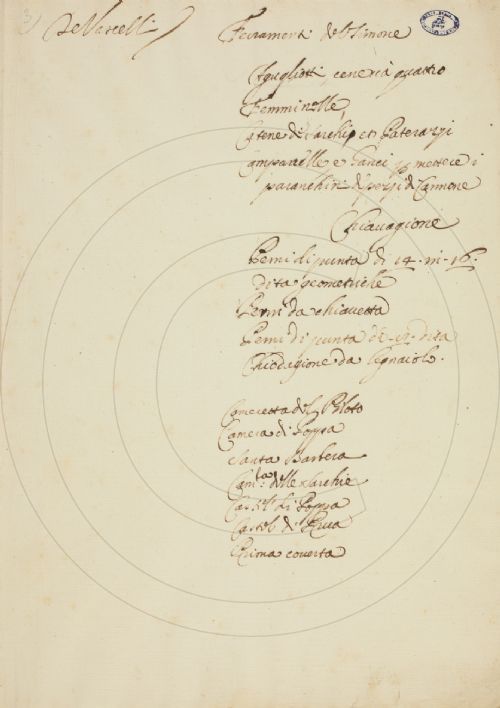 3)
De Vascelli
Ferramenti del Timone
Agugliotti, cenerea quattro
Femminelle,
Catene di Sarchie et Paterazzi
Campanelle e Ganci p mettere i
paranchini d pezzi d Cannone
Chiavagione
Perni di punta di 14. in. 16.
dita geometriche
Perni da chiavetta
Perni di punta di 12. dita
Chiodagione da legnaiolo.
Cameretta del Piloto
Camera di Poppa
Santa Barbera
Camta delle Sarchie
Castl di Poppa
Castelo di Prua
Prima coverta